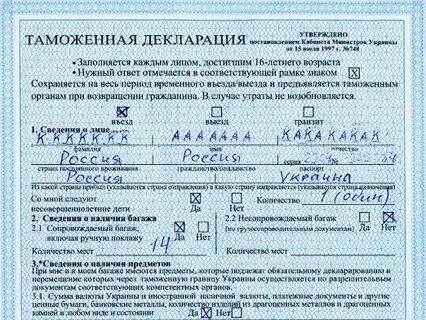 ТАМОЖЕННАЯ ДЕКЛАРАЦИЯ
УТВЕРЖДЕНО
постановлением Кабинета Министров Украины
от 15 июля 1997 г. №748
• Заполняется каждым лицом, достигшим 16-летнего возраста
• Нужный ответ отмечается в соответствующей рамке знаком X
Сохраняется на весь период временного въезда/выезда и предъявляется таможенным
органам при возвращении гражданина. В случае утраты не возобновляется.
въезд выезд транзит
1. Сведения о лице
К К К К К К К А А А А А А А К А К А К А К А К
фамилия имя отчество
Россия Россия серия №
страна постоянного проживания гражданство/подданство паспорт
Россия Украина
Из какой страны прибыл (указывается страна отправления) в какую страну направляется (указывается страна назначения)
Со мной следуют
несовершеннолетние дети Да Нет Количество 1 (один)
2. Сведения о наличии багажа
2.1 Сопровождаемый багаж,
включая ручную поклажу Да Нет
2.2 Несопровождаемый багаж
(по грузосопроводительным документам) Да Нет
Количество мест 14 Количество мест
3.*Сведения о наличии предметов
При мне и в моем багаже имеются предметы, которые подлежат обязательному декларированию и
перемещение которых через таможенную границу Украины осуществляется по разрешительным
документам соответствующих компетентных органов.
3.1. Сумма валюты Украины и иностранной наличной валюты, платежные документы и другие
ценные бумаги, банковские металлы, количество изделий из драгоценных металлов и драгоценных
камней в любом виде и состоянии Да Нет